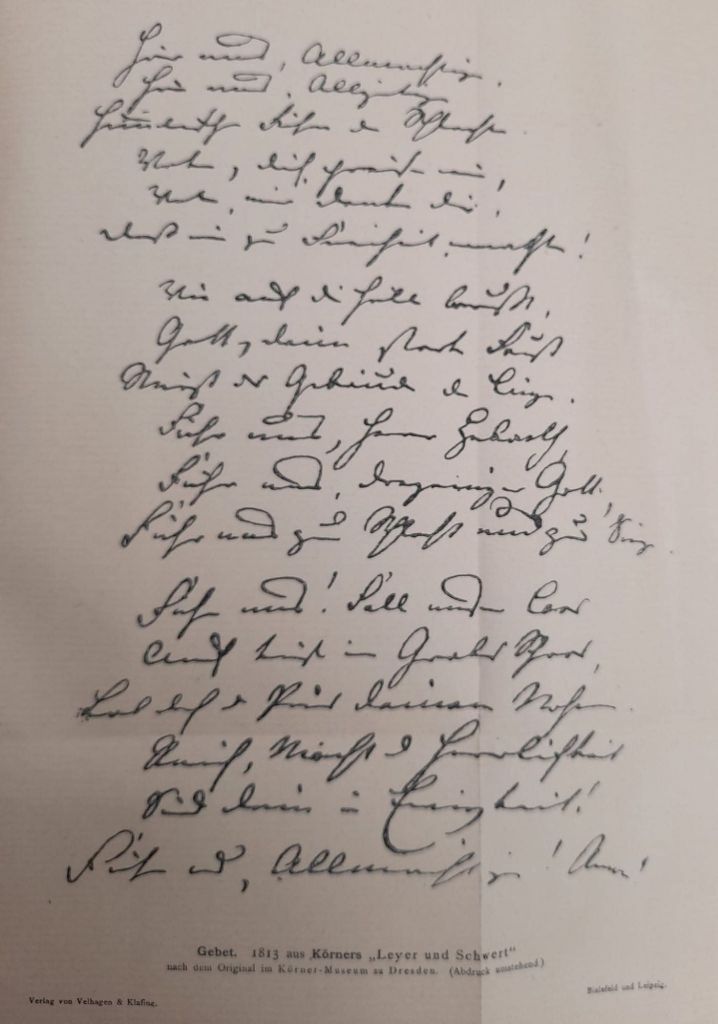 Hör uns, Allmächtiger.
Hör uns, Allgütiger
Himmlischer Führer der Schlachten.
Vater, dich preisen wir,
Vater, wir danken dir,
Daß wir zur Freiheit erwachten!
Wie auch die Hölle braust,
Gott, deine starke Faust
Stürzt das Gebäude der Lüge.
Führ uns, Herr Zebaoth,
Führ uns, dreyeiniger Gott,
Führ uns zur Schlacht und zum Siege
Führ uns! Fall unser Loos
Auch tief in Grabes Schoos,
Lob doch u Preis deinem Namen.
Reich, Macht u Herrlichkeit
Sind dein in Ewigkeit!
Führ uns, Allmächtiger! Amen!
Gebet. 1813 aus Körners „Leyer und Schwert“
nach dem Original im Körner-Museum zu Dresden. (Abdruck umstehend.)
Verlag von Velhagen & Klasing.
Bielefeld und Leipzig.